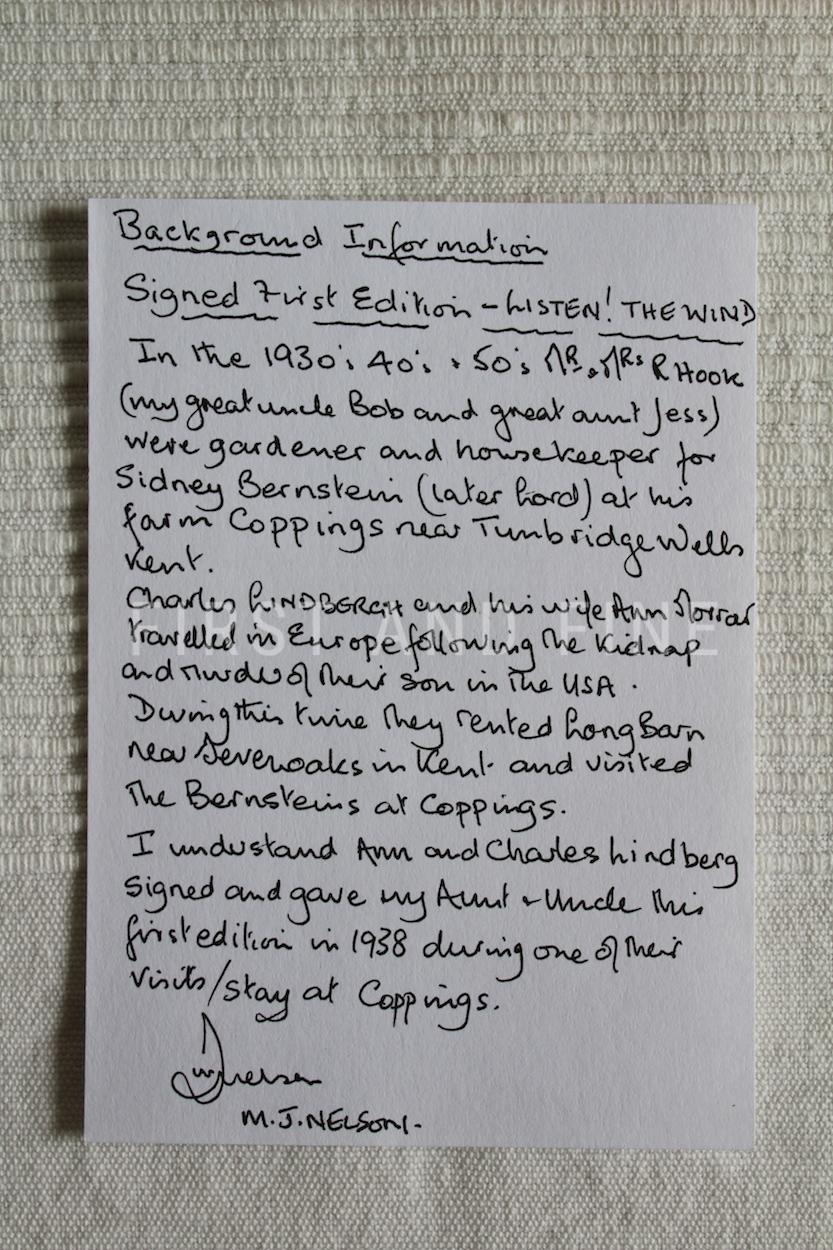 Background Information
Signed First Edition - LISTEN! THE WIND
In the 1930's 40's + 50's MR & MRs R HOOK
(my great uncle Bob and great aunt Jess)
were gardener and housekeeper for
Sidney Bernstein (later Lord) at his
farm Coppings near Tunbridge Wells
Kent.
Charles LINDBERGH and his wife Ann Morrar
travelled in Europe following the Kidnap
and Murder of their son in the USA.
During this time they rented Long Barn
near Sevenoaks in Kent and visited
the Bernsteins at Coppings.
I understand Ann and Charles Lindberg
signed and gave my Aunt + Uncle this
first edition in 1938 during one of their
visits/stay at Coppings.
M.J. NELSON.
FIRST AND FINE